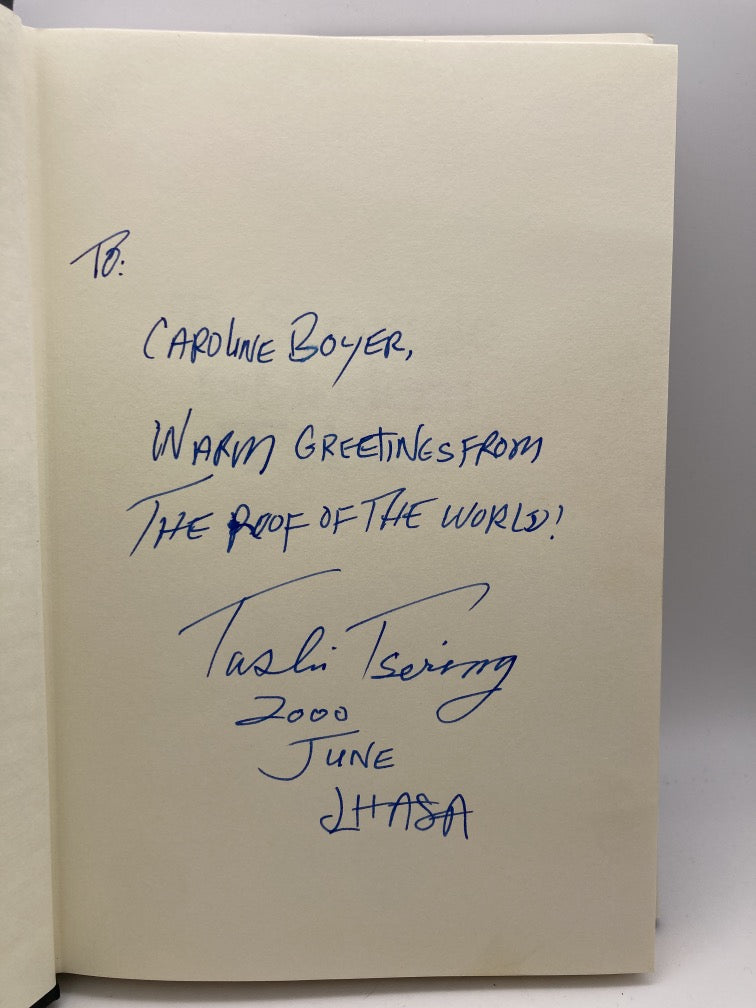 To:
CAROLINE BOYER,
WARM GREETINGS FROM
THE ROOF OF THE WORLD!
Tashi Tsering
2000
JUNE
LHASA